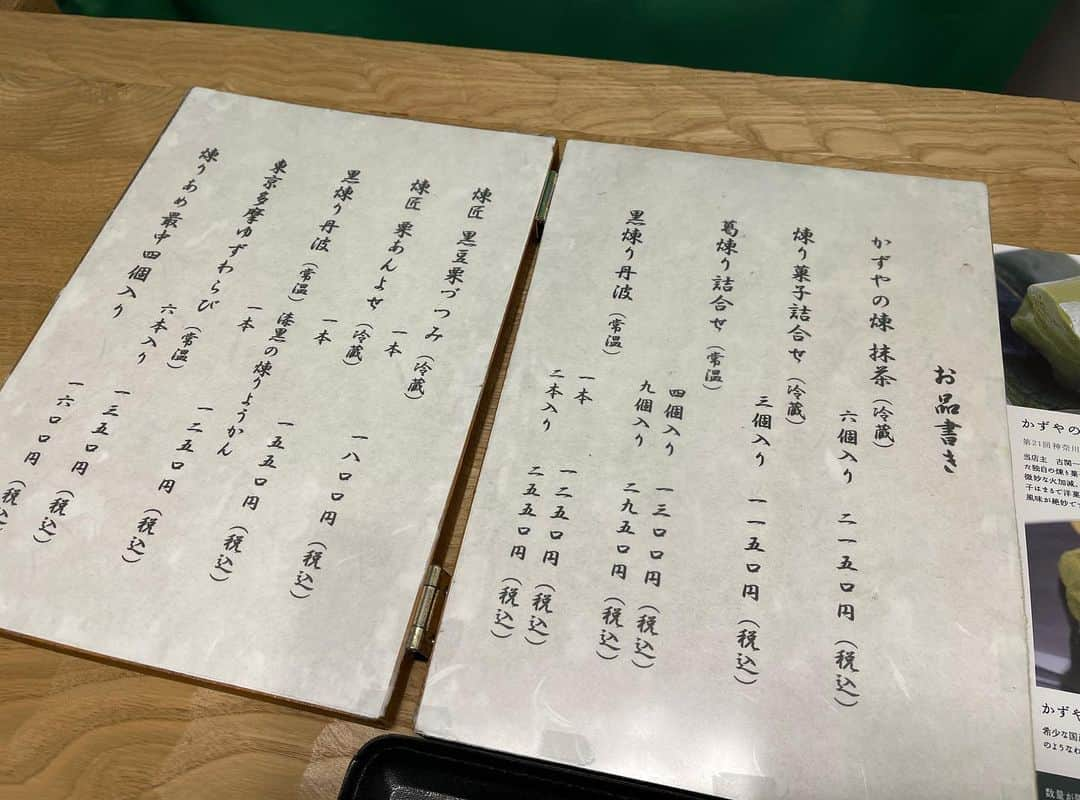 お品書き
かずやの煉 抹茶(冷蔵)
六個入り 二一五〇円(税込)
煉り菓子詰合せ(冷蔵)
三個入り 一一五〇円(税込)
葛煉り詰合せ(常温)
四個入り 一三〇〇円(税込)
九個入り 二九五〇円(税込)
黒煉り丹波(常温)
一本 一二五〇円(税込)
二本入り 二五五〇円(税込)
煉匠 黒豆栗づつみ(冷蔵)
一本 一八〇〇円(税込)
煉匠 栗あんよせ(冷蔵)
一本 一五五〇円(税込)
黒煉り丹波(常温)漆黒の煉りようかん
一本 一二五〇円(税込)
東京多摩ゆずわらび(常温)
六本入り 一三五〇円(税込)
煉りあめ最中四個入り 一六〇〇円(税込)
かずやの
第21回神奈川
当店主 古関一
た独自の煉り菓
微妙な火加減、
子はまるで洋菓
風味が絶妙で
かずや
希少な国
のようなわ
数量が